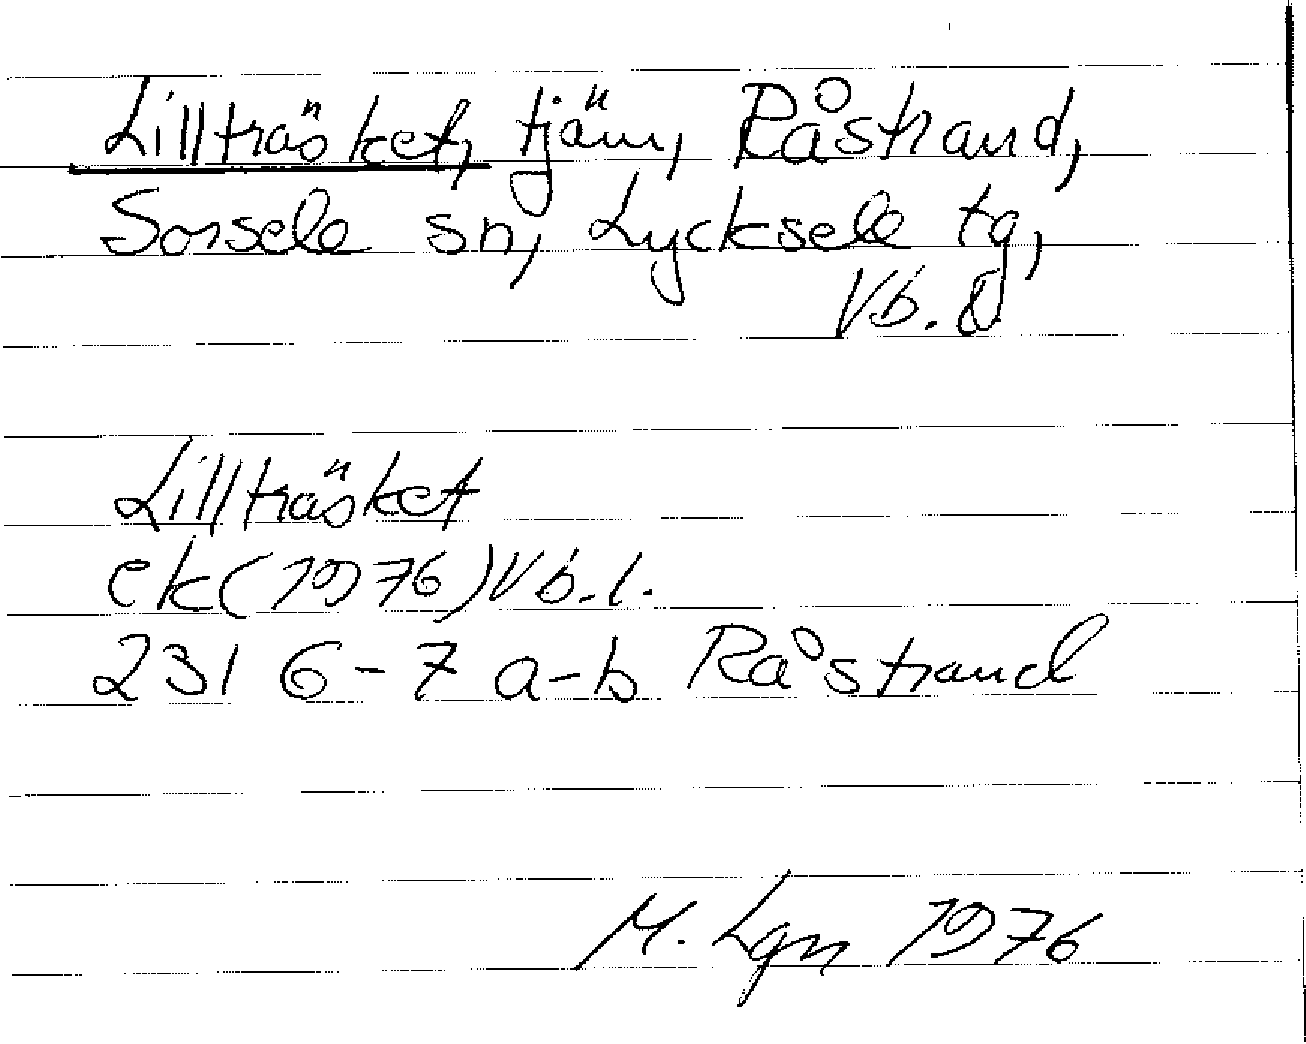 Lillträsket, tjärn, Råstrand,
Sorsele sn, Lycksele tg,
Vb. l.
Lillträsket
ek (1976) Vb. l.
231 6-7 a-b Råstrand
M. Lgn 1976